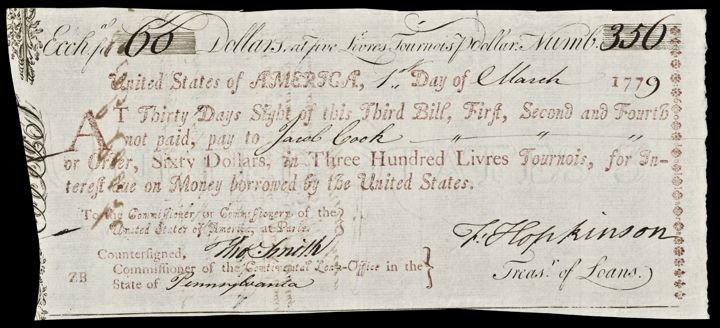 Excha. for 60 Dollars, at five Livres Tournois ℔ dollar. Numb. 356
United States of AMERICA, 1st Day of March 1779
AT Thirty Days Sight of this Third Bill, First, Second and Fourth
not paid, pay to Jacob Cook " " "
or Order, Sixty Dollars, in Three Hundred Livres Tournois, for In-
terest due on Money borrowed by the United States.
To the Commissioner or Commissioners of the
United States of America, at Paris.
Countersigned, Tho Smith
F. Hopkinson
Commissioner of the Continental Loan-Office in the
State of Pennsylvania
Treasr. of Loans.
ZB